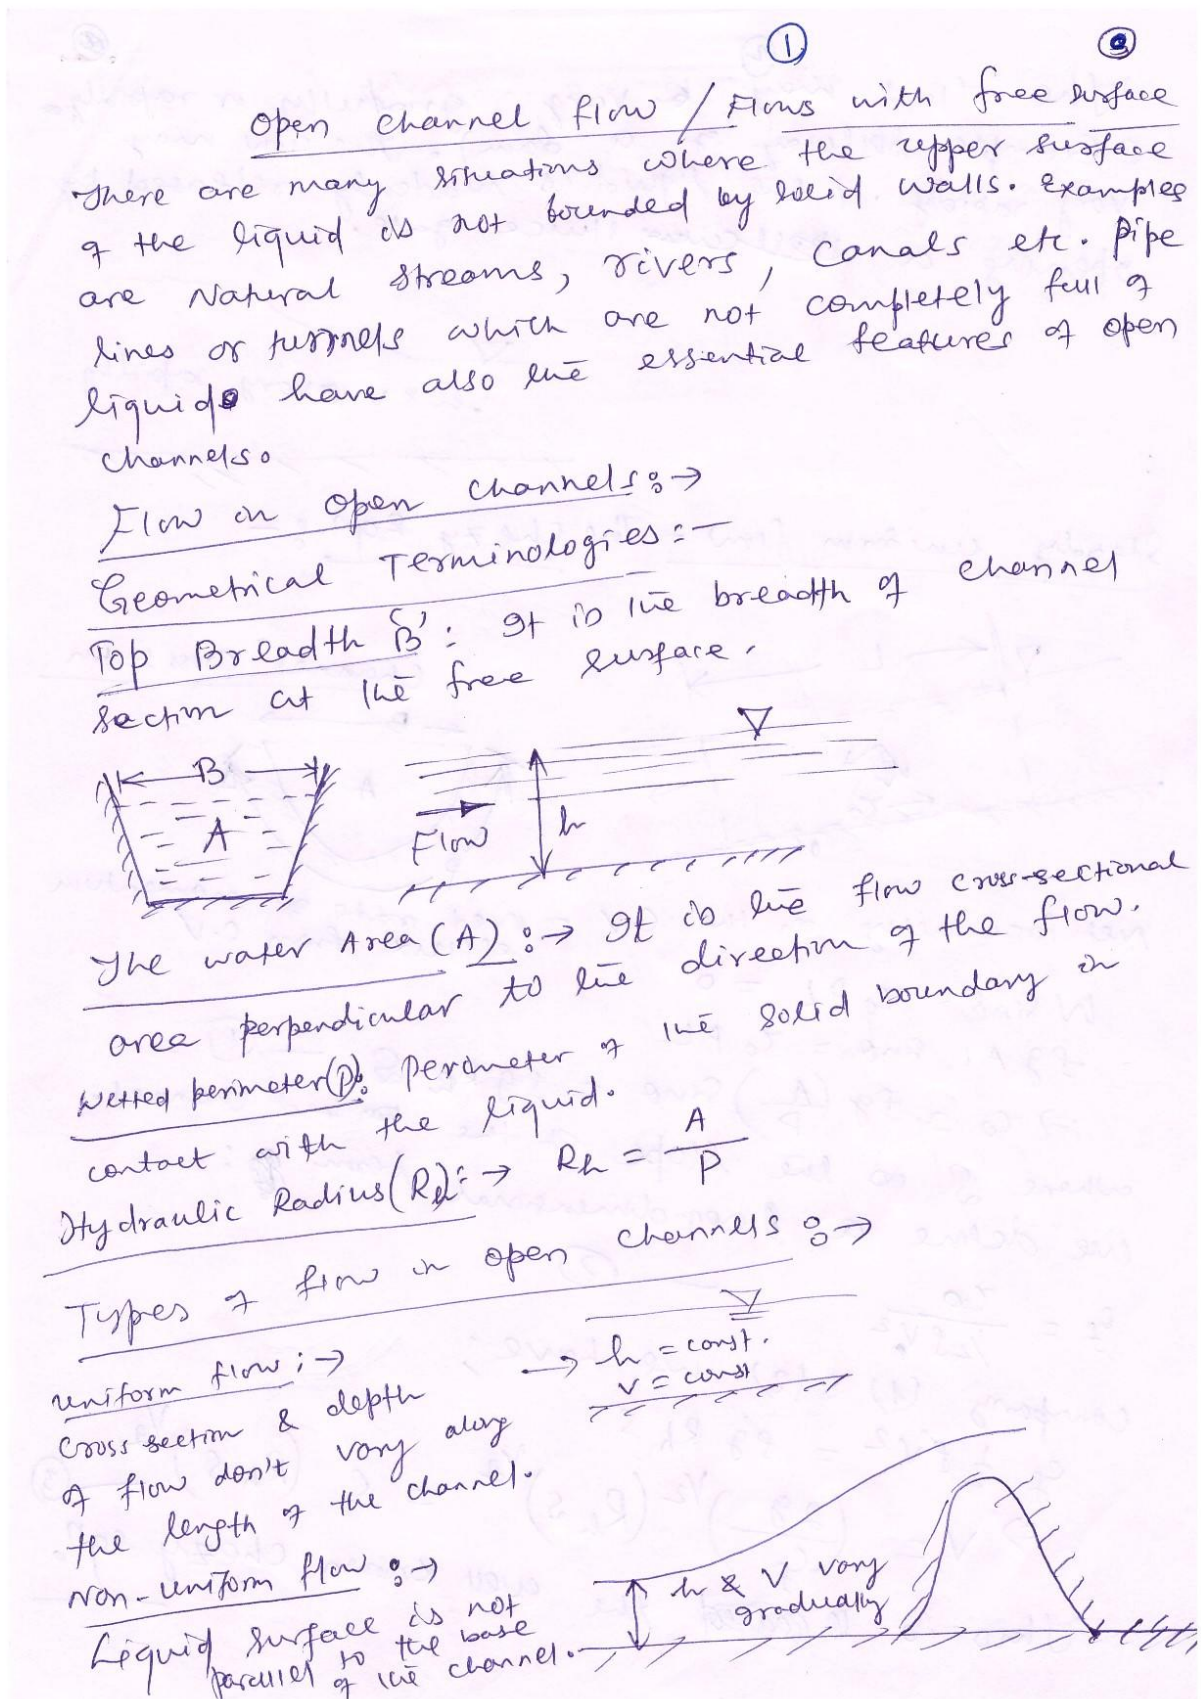 1
Open channel flow / Flows with free surface
There are many situations where the upper surface
of the liquid is not bounded by solid walls. Examples
are Natural streams, rivers, canals etc. Pipe
lines or tunnels which are not completely full of
liquid have also the essential features of open
channels.
Flow in open channels :→
Geometrical Terminologies :-
Top Breadth 'B' : It is the breadth of channel
section at the free surface.
B
A
Flow
h
The water Area (A) :→ It is the flow cross-sectional
area perpendicular to the direction of the flow.
Wetted perimeter (P): Perimeter of the solid boundary in
contact with the liquid.
Hydraulic Radius (Rh) :→ Rh = A/P
Types of flow in open channels :→
Uniform flow :→
Cross section & depth
of flow don't vary along
the length of the channel.
→ h = const.
V = const
Non-uniform flow :→
Liquid surface is not
parallel to the base
of the channel.
h & V vary
gradually